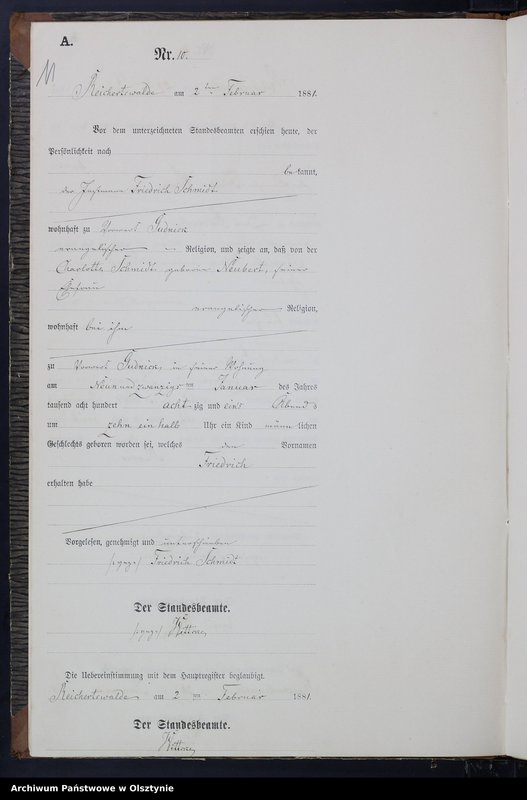 A.
Nr. 10.
11
Reichertswalde am 2 ten Februar 1881.
Vor dem unterzeichneten Standesbeamten erschien heute, der
Persönlichkeit nach
bekannt,
der Instmann Friedrich Schmidt
wohnhaft zu Vorwerk Gudnick
evangelischer Religion, und zeigte an, daß von der
Charlotte Schmidt geborene Neubert, seiner
Ehefrau
evangelischer Religion,
wohnhaft bei ihm
zu Vorwerk Gudnick, in seiner Wohnung
am Neunundzwanzigsten Januar des Jahres
tausend acht hundert achtzig und eins Abends
um zehn einhalb Uhr ein Kind männlichen
Geschlechts geboren worden sei, welches den Vornamen
Friedrich
erhalten habe
Vorgelesen, genehmigt und unterschrieben
/:gez:/ Friedrich Schmidt
Der Standesbeamte.
/:gez:/
Die Uebereinstimmung mit dem Hauptregister beglaubigt.
Reichertswalde am 2 ten Februar 1881.
Der Standesbeamte.
Archiwum Państwowe w Olsztynie